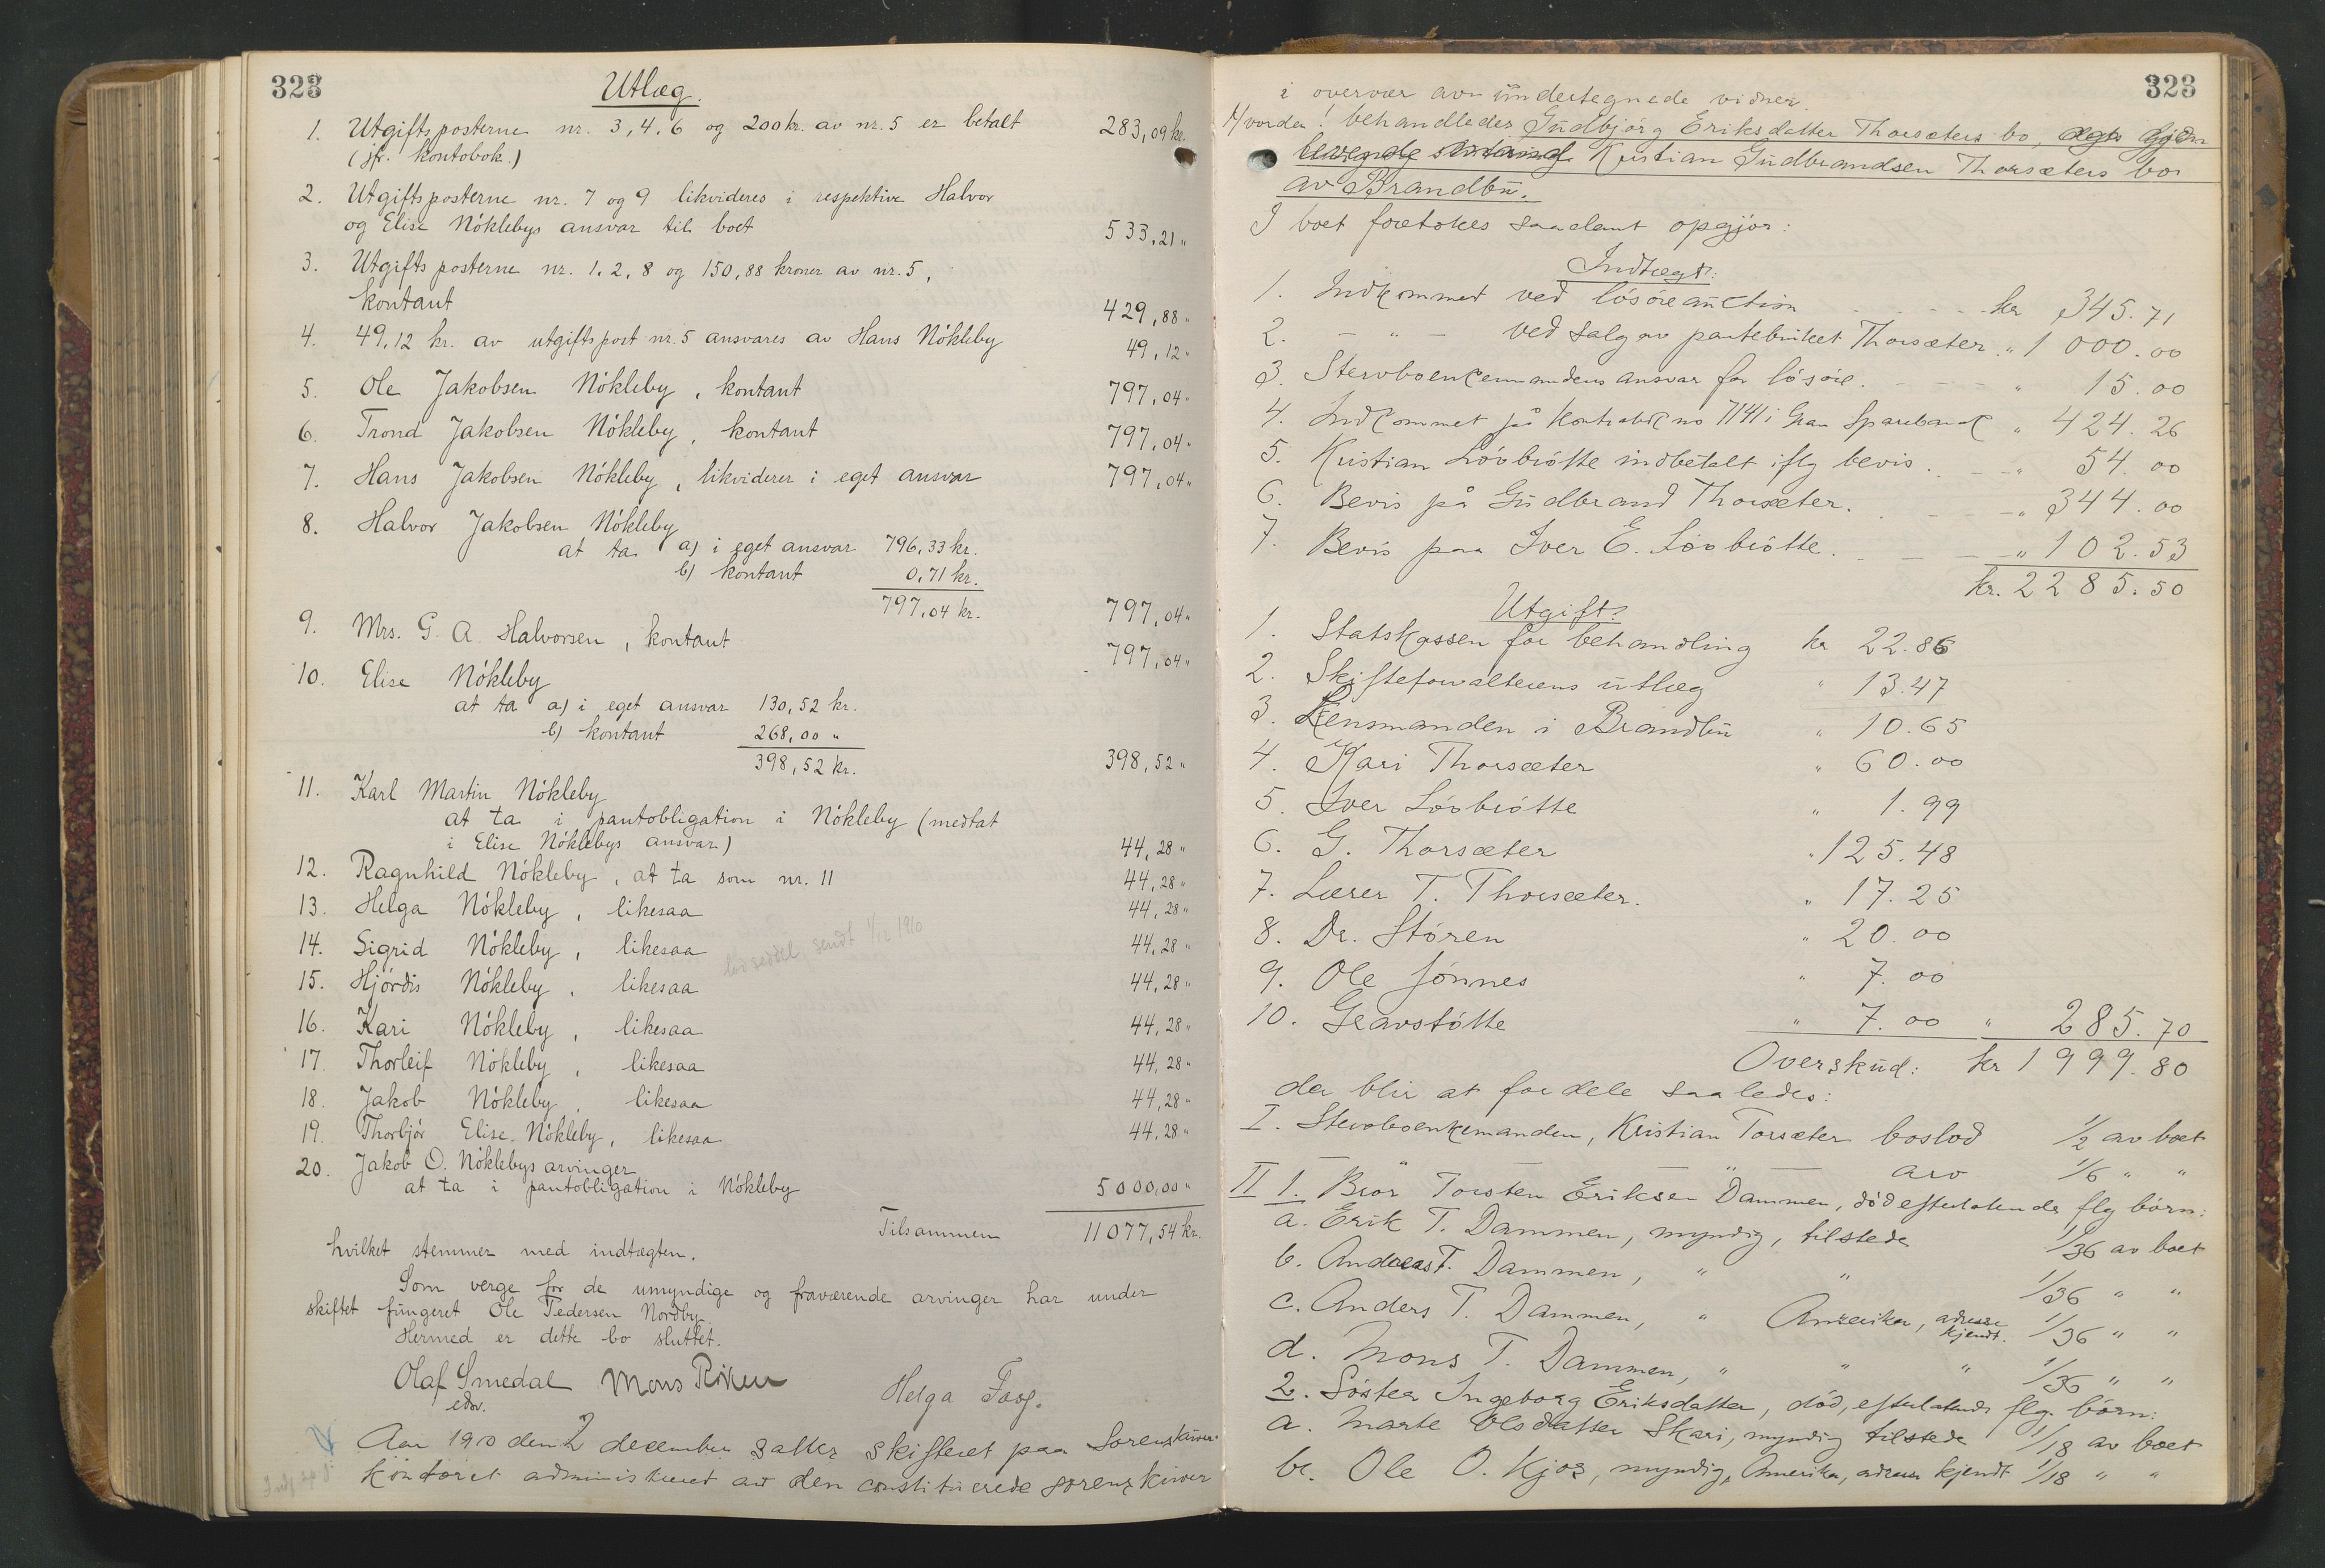 323
Utlæg.
1. Utgiftsposterne nr. 3, 4, 6 og 200 kr. av nr. 5 er betalt
(jfr. kontobok.) 283,09 kr.
2. Utgiftsposterne nr. 7 og 9 likvideres i respektive Halvor
og Elise Nökleby's ansvar til boet 533,21 "
3. Utgiftsposterne nr. 1, 2, 8 og 150,88 kroner av nr. 5,
kontant 429,88 "
4. 49,12 kr. av utgiftspost nr. 5 ansvares av Hans Nökleby 49,12 "
5. Ole Jakobsen Nökleby, kontant 797,04 "
6. Trond Jakobsen Nökleby, kontant 797,04 "
7. Hans Jakobsen Nökleby, likviderer i eget ansvar 797,04 "
8. Halvor Jakobsen Nökleby
at ta a) i eget ansvar 796,33 kr.
b) kontant 0,71 kr.
797,04 kr. 797,04 "
9. Mrs. G. A. Halvorsen, kontant 797,04 "
10. Elise Nökleby
at ta a) i eget ansvar 130,52 kr.
b) kontant 268,00 "
398,52 kr. 398,52 "
11. Karl Martin Nökleby
at ta i pantobligation i Nökleby (medtat
i Elise Nöklebys ansvar) 44,28 "
12. Ragnhild Nökleby, at ta som nr. 11 44,28 "
13. Helga Nökleby, likesaa 44,28 "
14. Sigrid Nökleby, likesaa 44,28 "
sendt 1/12 1910
15. Hjördis Nökleby, likesaa 44,28 "
16. Kari Nökleby, likesaa 44,28 "
17. Thorleif Nökleby, likesaa 44,28 "
18. Jakob Nökleby, likesaa 44,28 "
19. Thorbjör Elise Nökleby, likesaa 44,28 "
20. Jakob O. Nöklebys arvinger
at ta i pantobligation i Nökleby 5000,00 "
Tilsammen 11077,54 kr.
hvilket stemmer med indtægten.
Som verge for de umyndige og fraværende arvinger har under
skiftet fungeret Ole Pedersen Nordby.
Hermed er dette bo sluttet.
Olaf Smedal Mons Röken Helga
edsv.
Aar 1910 den 2 december sattes skifteret paa Sorenskriver-
kontoret administreret av den constituerede sorenskriver
323
i overvær av undertegnede vidner.
Hvorda! behandledes Gudbjörg Eriksdatter Thorsæters bo,
Kristian Gudbrandsen Thorsæters bo
av Brandbu.
I boet foretokes saadant opgjör:
Indtægt:
1. Indkommet ved lösöreauction kr 345.71
2. - " - ved salg av partebruket Thorsæter " 1 000.00
3. Stervboenkemandens ansvar for lösöre. " 15.00
4. Indkommet på Kontrabok no 7141 i Gran Sparebank " 424.26
5. Kristian Lövbrötte indbetalt iflg bevis. " 54.00
6. Bevis på Gudbrand Thorsæter. " 344.00
7. Bevis paa Iver E. Lövbrötte. " 102.53
kr. 2285.50
Utgift:
1. Statskassen for behandling kr 22.86
2. Skifteforvalterens utlæg " 13.47
3. Lensmanden i Brandbu " 10.65
4. Kari Thorsæter " 60.00
5. Iver Lövbrötte " 1.99
6. G. Thorsæter " 125.48
7. Lærer T. Thorsæter. " 17.25
8. Dr. Stören " 20.00
9. Ole Jönnes " 7.00
10. Gravstötte " 7.00 " 285.70
Overskud: kr 1999.80
der blir at fordele saaledes:
I. Stervboenkemanden, Kristian Torsæter boslod 1/2 av boet
— " — " — arv 1/6 " "
II 1. Bror Torsten Eriksen Dammen, död efterlatende flg börn:
a. Erik T. Dammen, myndig, tilstede 1/36 av boet
b. Andreas T. Dammen, " " 1/36 " "
c. Anders T. Dammen, " Amerika, adresse kjendt. 1/36 " "
d. Mons T. Dammen, " " " 1/36 " "
2. Söster Ingeborg Eriksdatter, död, efterlatende flg. börn:
a. Marte Olsdatter Skari, myndig tilstede 1/18 av boet
b. Ole O. Kjos, myndig, Amerika, adresse kjendt 1/18 " "